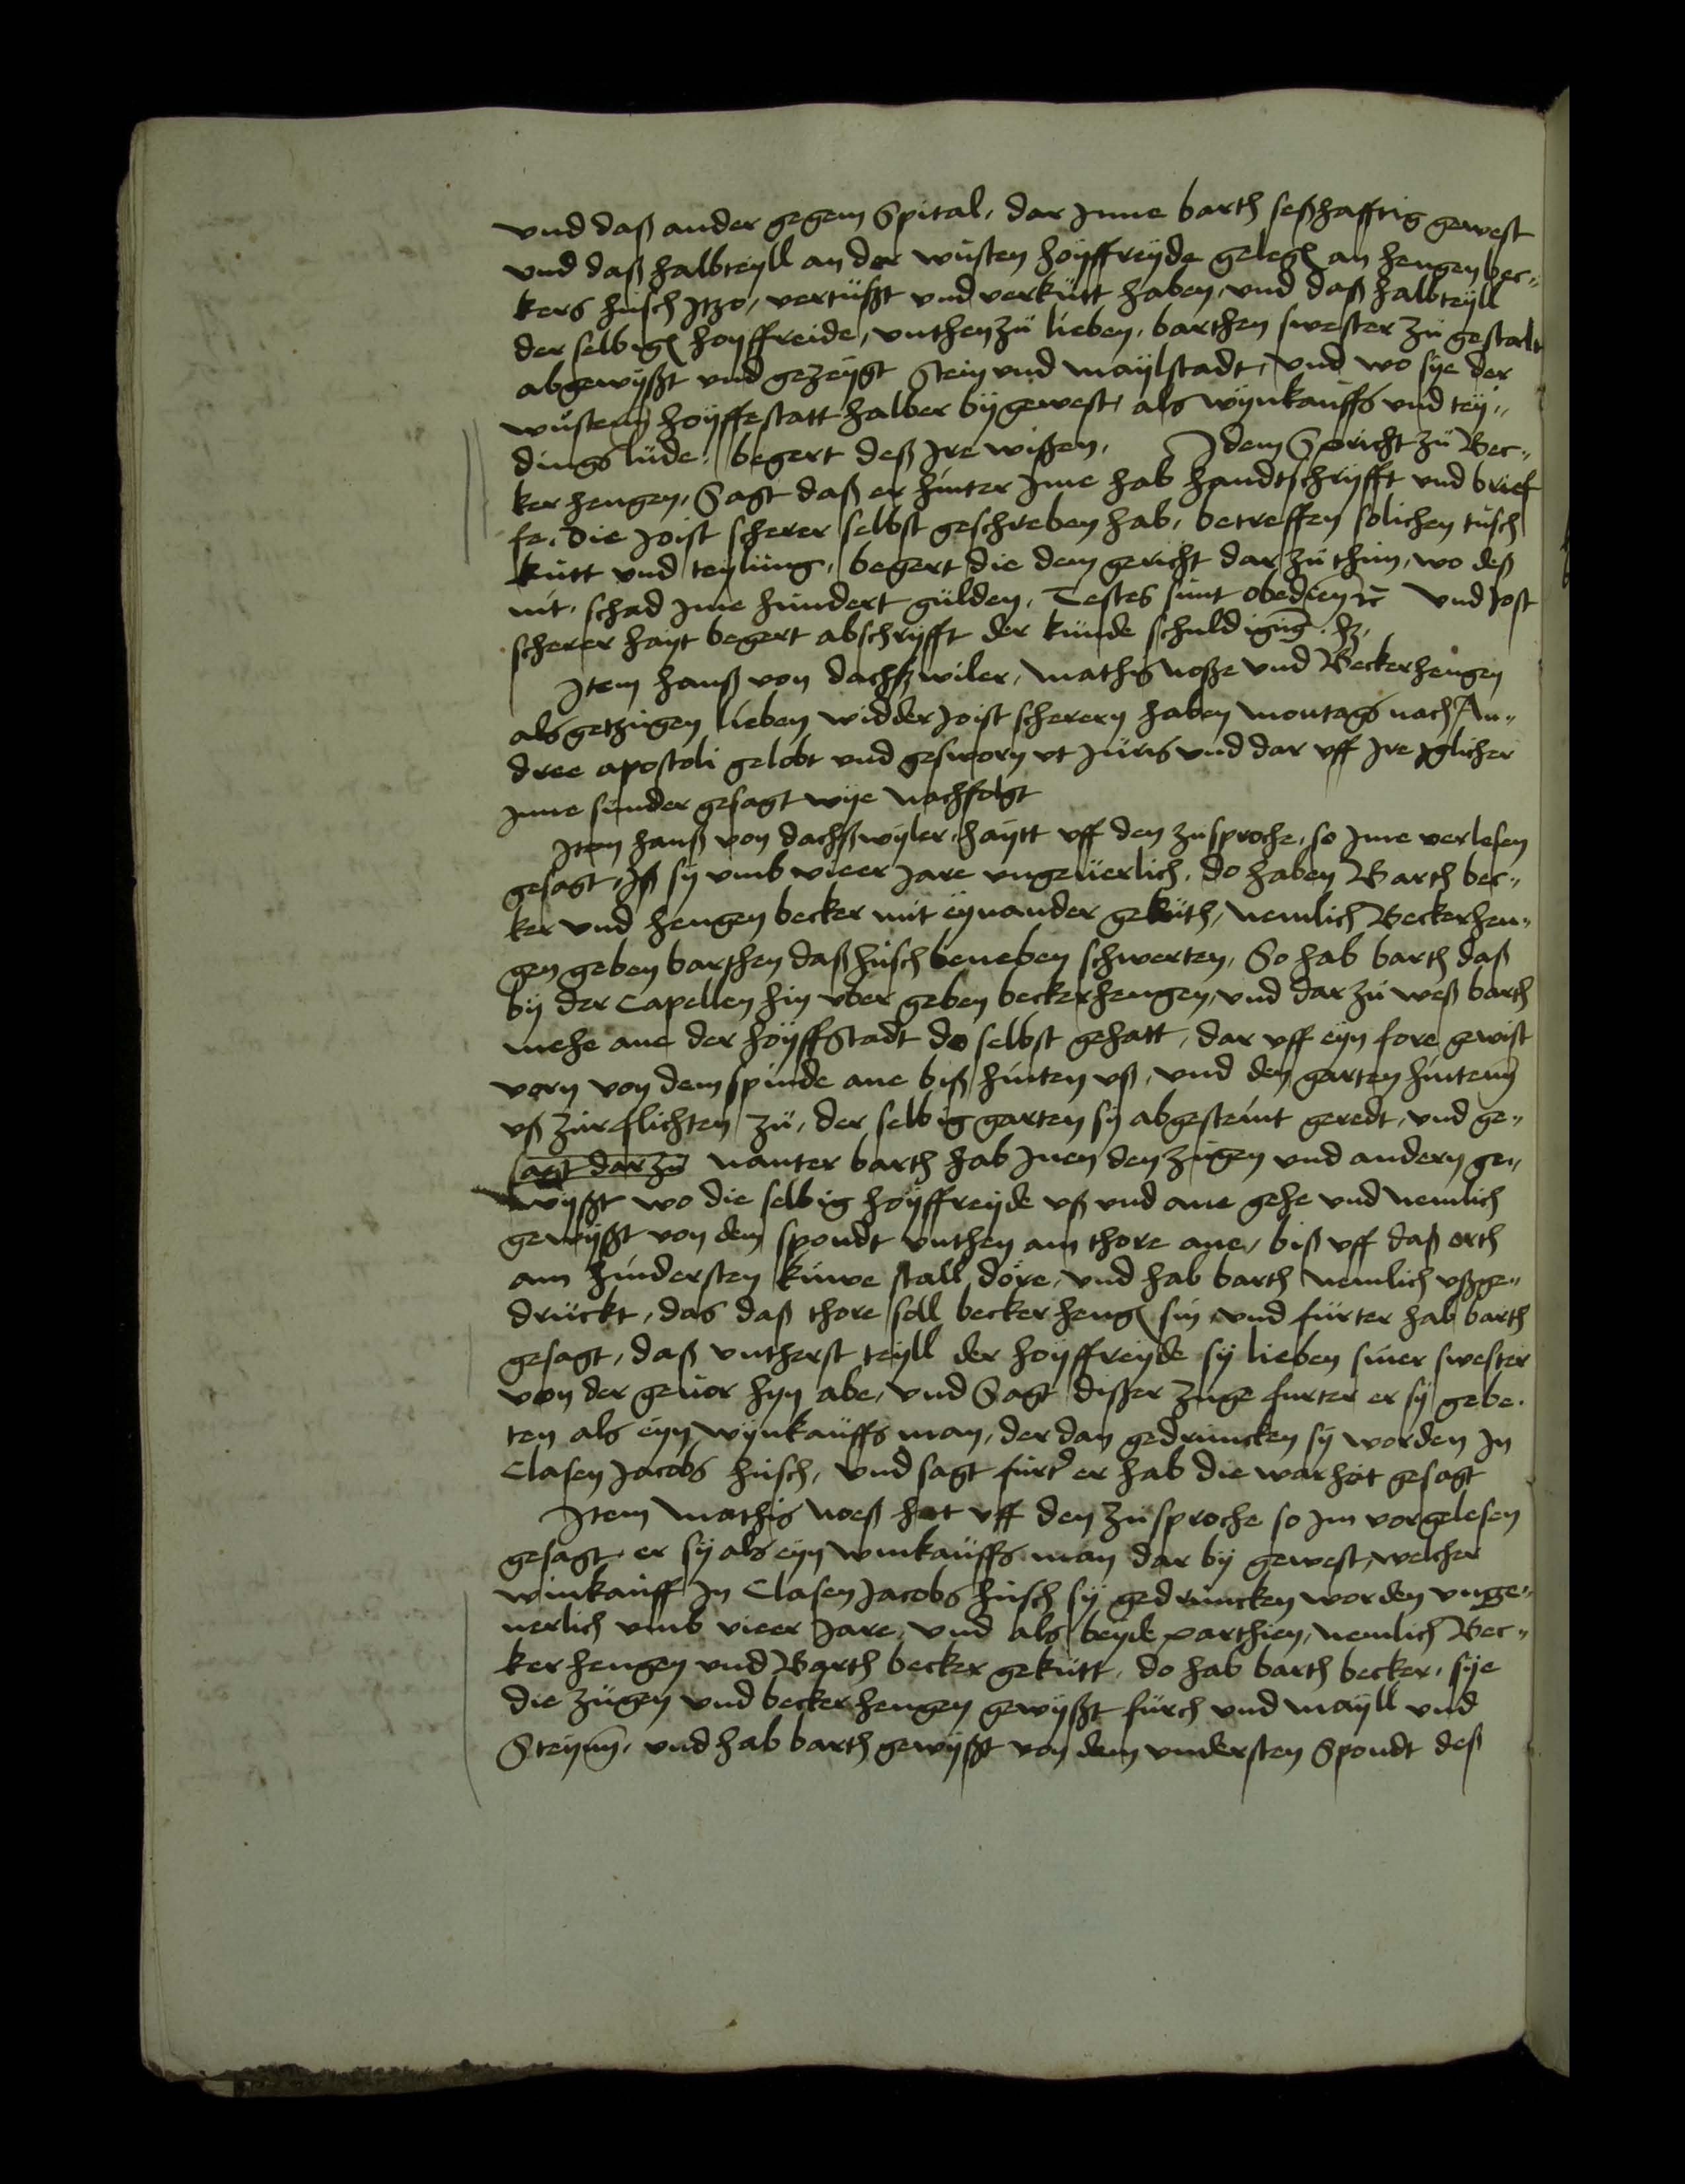 vnd daß ander gegem Spital, dar Inne barth seßhafftig gewest
vnd daß halbteyll an der wůsten hoyffreyde geleg(en) an hengen bec„
kers hůsch Itzo, vertůßt vnd verkůtt haben, vnd daß halbteyll
der selbig(en) hoyffreide, vnthen zů lieben, barthen swester zů gestalt
abgewyßt vnd gezeygt Stein vnd maylstadt, vnd wo sye der
wůsten hoyffestatt halber by gewest, als wynkauffs vnd tey„
dings lůde, begert deß Ire wißen, Idem Spricht zů Bec„
ker hengen, Sagt daß er hinter Ime hab handtschryfft vnd brief
fe, die Joist scherer selbst geschreben hab, betreffen solichen tůsch
kůtt vnd teylung, begert die dem gericht dar zů thůn, wo deß
nit, schad Ime hundert gůlden, Testes sunt obedien(tes) etc vnd Jost
scherer hayt begert abschryfft der kunde schuldigu(n)g.
Item hanß von dachßwiler, mathis noße vnd Beckerhengen
als getzugen lieben widder Joist scherern haben montags nach An„
dree apostoli gelobt vnd gesworn vt Juris vnd dar vff Ire Iglicher
Inne sunder gesagt wye nachfolgt
Item hanß von dachßwyler, haytt vff den zusproche, so Ime verlesen
gesagt, Iß sy vmb vieer Jare vngeuerlich, do haben Barth bec„
ker vnd hengen becker mit eynander gekůth, nemlich Beckerhen„
gen geben barthen daß hůsch beneben schwerten, So hab barth daß
by der Capellen hin vber geben beckerhengen, vnd dar zů weß barth
mehe ane der hoyffstadt do selbst gehatt, dar vff eyn fore gewist
vorn von dem spinde ane biß hinten vß, vnd den garten hinten
vß zůr flichten zů, der selbig garten sy abgesteint geredt, vnd ge„
sagt dar zů nanter barth hab Inen den zugen vnd andern ge„
wyßt wo die selbig hoyffreyde vß vnd ane gehe vnd nemlich
gewyßt von dem spondt vnthen am thore ane, biß vff daß orth
am hindersten kuwe stall dore, vnd hab barth nemlich vßge„
drůckt, das daß thore soll becker heng(en) sin, vnd fůrter hab barth
gesagt, daß vntherst teyll der hoyffreyde sy lieben siner swester
von der geuor hyn abe, vnd Sagt dißer zuge furter er sy gebe.
ten als eyn wynkauffs man, der dan gedruncken sy worden In
Clasen Jacobs hůsch, vnd sagt furt(er) er hab die warheit gesagt
Item mathis noeß hatt vff den zůsproche so Im vorgelesen
gesagt, er sy als eyn winkauffs man dar by gewest, welcher
winkauff In Clasen Jacobs hůsch sy gedruncken worden vnge„
uerlich vmb vieer Jare, vnd als beyde parthien, nemlich Bec„
ker hengen vnd Barth becker gekůtt, do hab barth becker, sye
die zůgen vnd becker hengen gewyßt fůrch vnd mayll vnd
Steynn, vnd hab barth gewyßt von dem vndersten Spondt deß